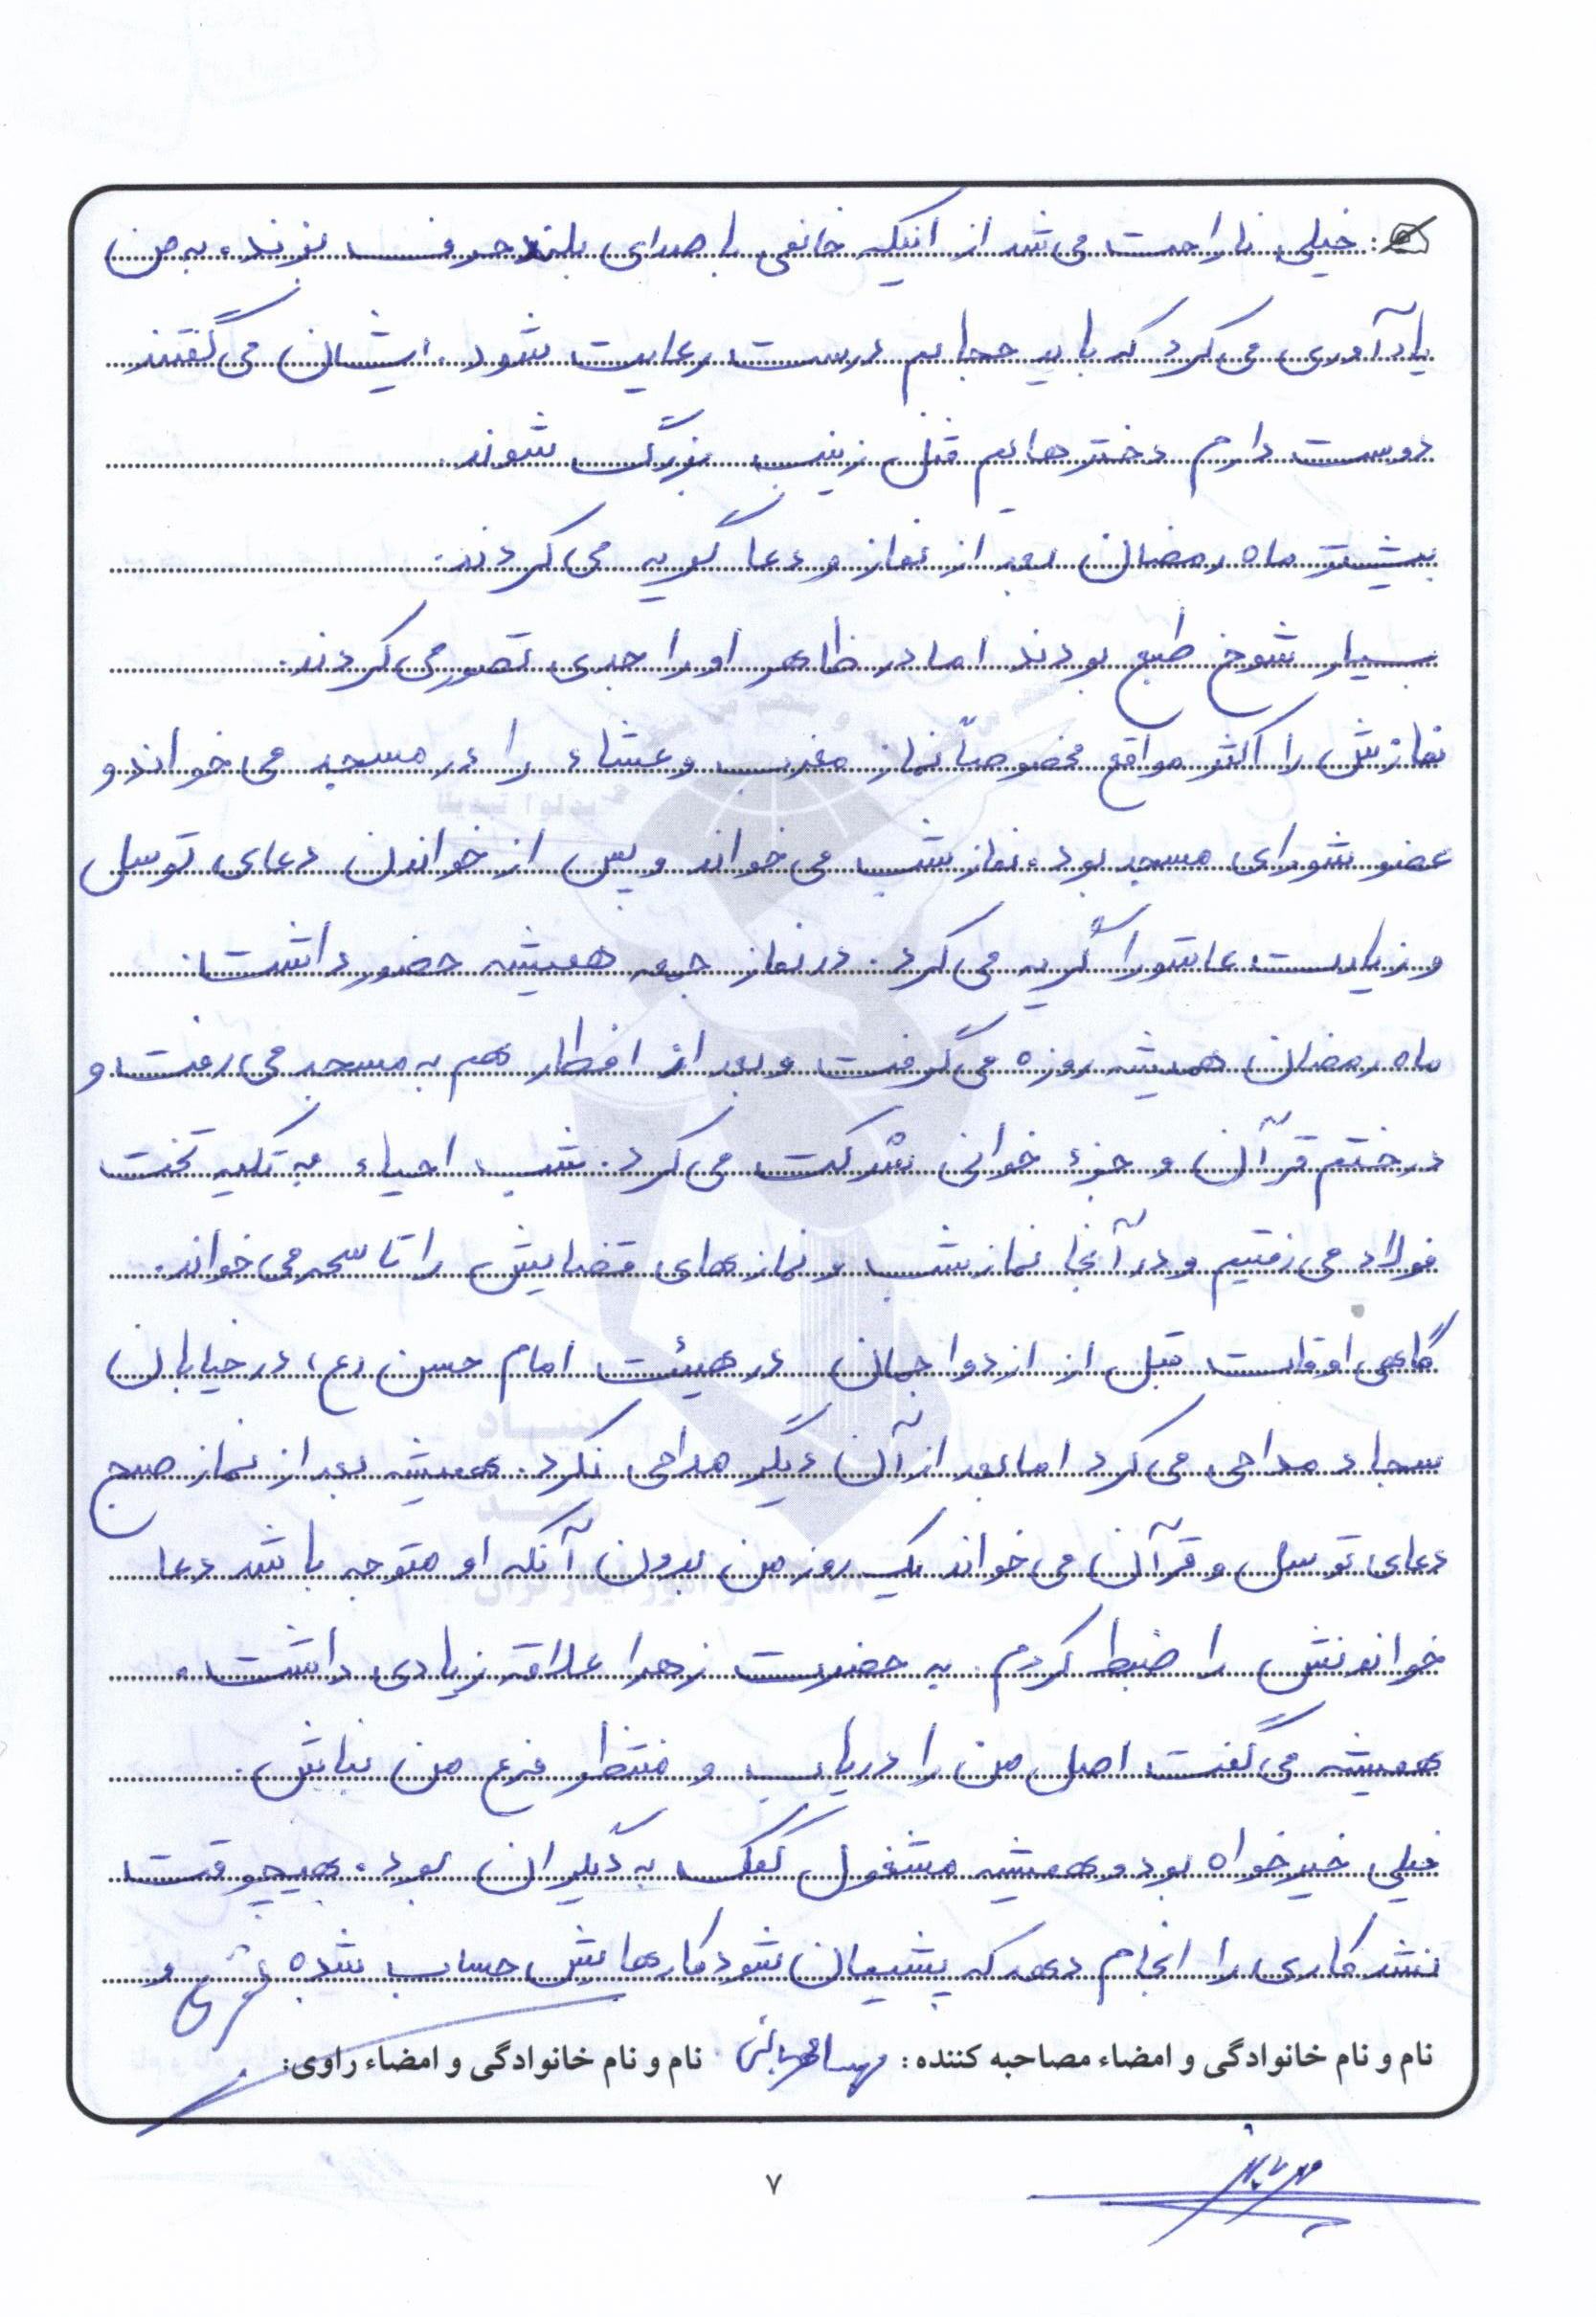 خیلی ناراحت می‌شد از اینکه خانمی با صدای بلند حرف بزند، به من
یادآوری می‌کرد که باید حجابم درست رعایت شود. ایشان می‌گفتند
دوست دارم دخترهایم مثل زینب بزرگ شوند.
بیشتر ماه رمضان بعد از نماز و دعا گریه می‌کردند.
بسیار شوخ طبع بودند اما در ظاهر او را جدی تصور می‌کردند.
نمازش را اکثر مواقع مخصوصاً نماز مغرب و عشاء را در مسجد می‌خواند و
عضو شورای مسجد بود، نماز شب می‌خواند و پس از خواندن دعای توسل
و زیارت عاشورا گریه می‌کرد. در نماز جمعه همیشه حضور داشت.
ماه رمضان همیشه روزه می‌گرفت و بعد از افطار هم به مسجد می‌رفت و
در ختم قرآن و جزء خوانی شرکت می‌کرد. شب احیاء به تکیه تخت
فولاد می‌رفتیم و در آنجا نماز شب و نمازهای قضایش را تا سحر می‌خواند.
گاهی اوقات قبل از ازدواجمان در هیئت امام حسن (ع) در خیابان
سجاد مداحی می‌کرد اما بعد از آن دیگر مداحی نکرد. همیشه بعد از نماز صبح
دعای توسل و قرآن می‌خواند یک روز من بدون آنکه او متوجه باشد دعا
خواندنش را ضبط کردم. به حضرت زهرا علاقه زیادی داشت.
همیشه می‌گفت اصل من را دریاب و منتظر فرع من نباش.
خیلی خیرخواه بود و همیشه مشغول کمک به دیگران بود. هیچوقت
نشد کاری را انجام دهد که پشیمان شود کارهایش حساب شده و
نام و نام خانوادگی و امضاء مصاحبه کننده: نام و نام خانوادگی و امضاء راوی:
۷